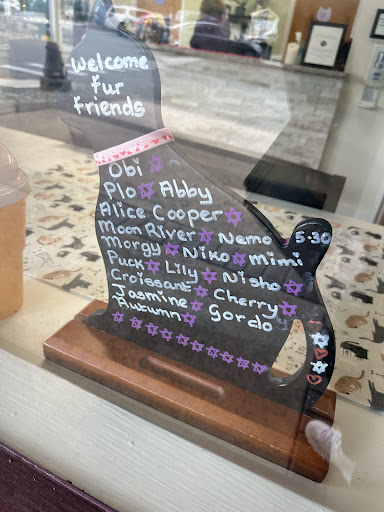 Welcome
fur
friends
Obi
Plo Abby
Alice Cooper
Moon River Nemo 5-30
Morgy Niko Mimi
Puck Lily Nisho
Croissant Cherry
Jasmine Gordo
Autumn